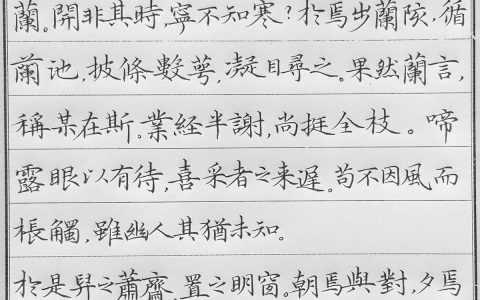 蘭。開非其時,寧不知寒?於焉步蘭陔,循
蘭池,披條數萼,凝目尋之。果然蘭言,
稱某在斯。業経半謝,尚挺全枝。啼
露眼以有待,喜采者之来遅。苟不因風而
棖觸,雖幽人其猶未知。
於是舁之蕭齋,置之明窗。朝焉與對,夕焉